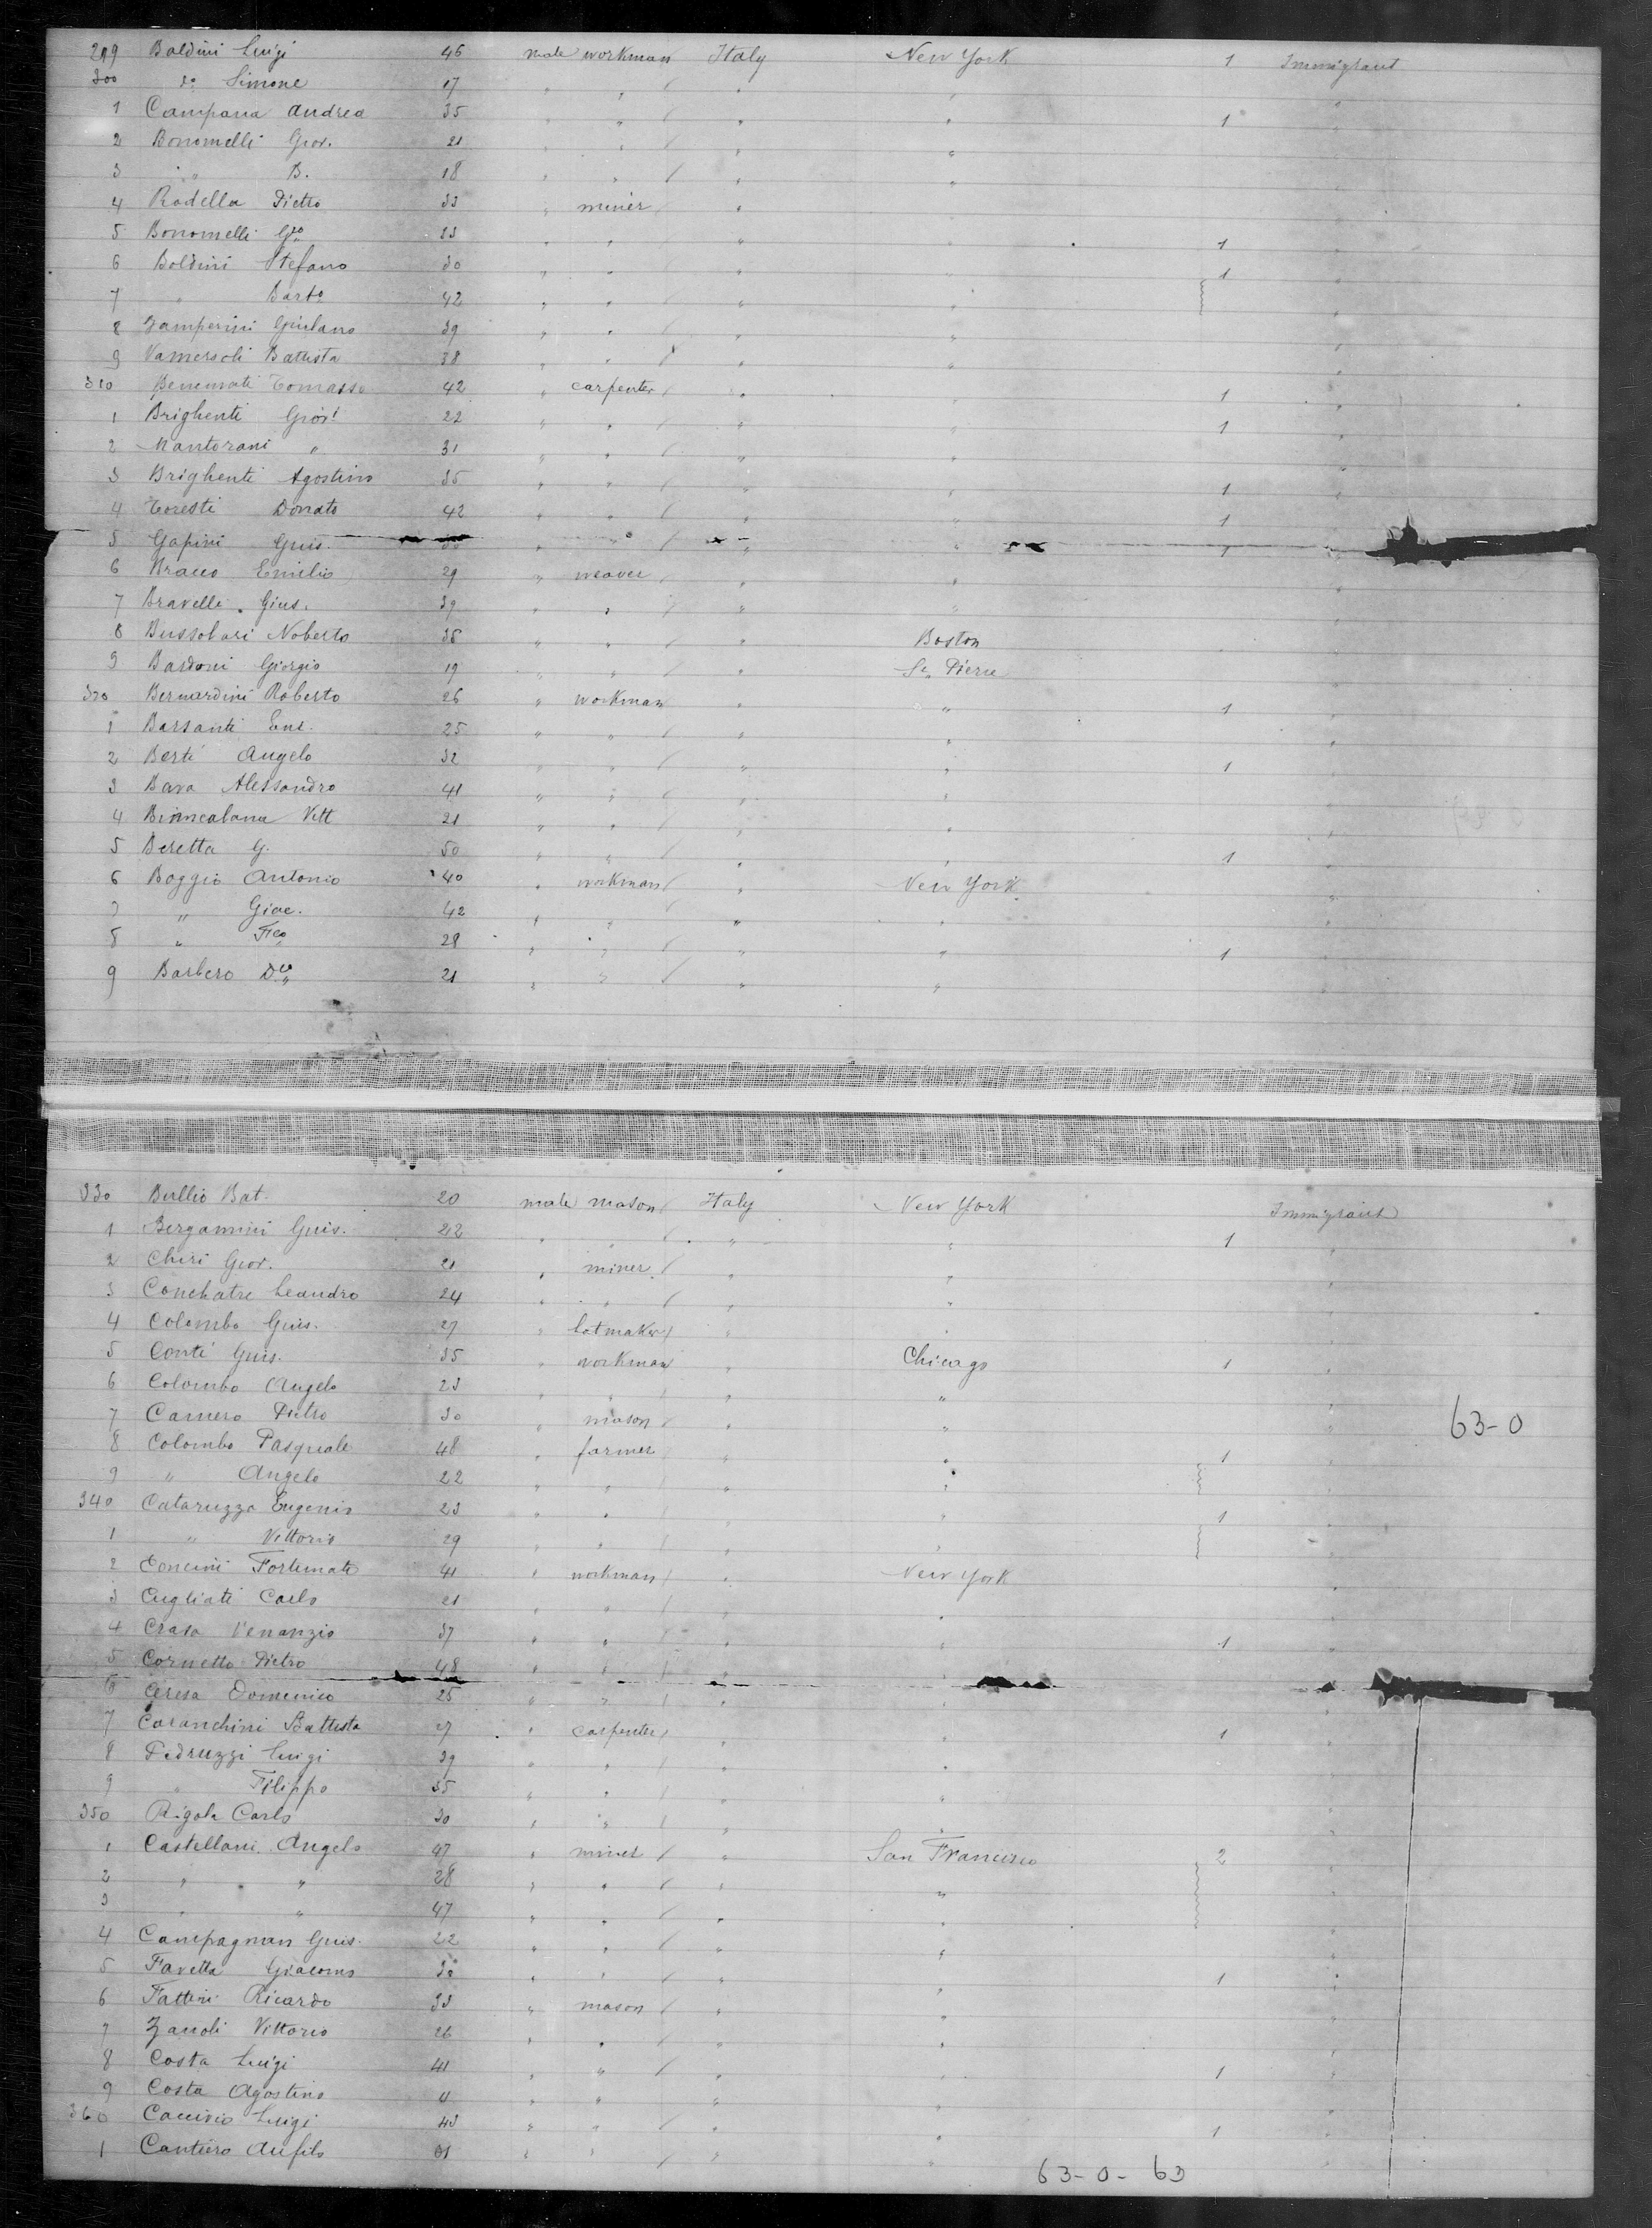 299 Baldini Luigi 46 male workman Italy New York 1 Immigrant
300 do Simone 17 " " " "
1 Campana Andrea 35 " " " " 1 "
2 Bonomelli Giov. 21 " " " "
3 " B. 18 " " " "
4 Rodella Pietro 33 " miner "
5 Bonomelli Gio 33 " " " 1 "
6 Boldini Stefano 30 " " " " 1 "
7 " Barto 42 " " " " "
8 Zamperini Giulano 39 " " " " "
9 Vamersoli Battista 38 " " " " "
310 Benemati Tomasso 42 " carpenter " " 1 "
1 Brighenti Giov! 22 " " " " 1 "
2 Mantovani " 31 " " " " "
3 Brighenti Agostino 35 " " " " 1 "
4 Toresti Donato 42 " " " " 1 "
5 Gapini Guis. " " " " 1 "
6 Bracco Emilio 29 " weaver " " "
7 Bravelli Gius. 39 " " " " "
8 Bussolari Noberto 35 " " " Boston
9 Bardoni Giorgio 19 " " " St. Pierre
320 Bernardini Roberto 26 " workman " " 1 "
1 Barsanti Enr. 25 " " " " "
2 Berti Angelo 32 " " " " 1 "
3 Bava Alessandro 41 " " " " "
4 Biancalana Vitt 21 " " " " "
5 Beretta G. 50 " " " " 1 "
6 Boggio Antonio 40 " workman " New York "
7 " Giac. 42 " " " " "
8 " Fco 28 " " " " 1 "
9 Barbero Dco 21 " " " " "
330 Bullio Bat. 20 male mason Italy New York Immigrant
1 Bergamini Guis. 22 " " " " 1 "
2 Chiri Giov. 21 " miner " " "
3 Conchatre Leandro 24 " " " " "
4 Colombo Guis. 27 " hatmaker " " "
5 Conti Guis. 35 " workman " Chicago 1 "
6 Colombo Angelo 23 " " " " "
7 Camero Pietro 30 " mason " " "
63-0
8 Colombo Pasquale 48 " farmer " " 1 "
9 " Angelo 22 " " " " "
340 Cataruzza Eugenio 23 " " " " 1 "
1 " Vittorio 29 " " " " "
2 Concini Fortunato 41 " workman " New York "
3 Cugliati Carlo 21 " " " " "
4 Crasa Venanzio 37 " " " " 1 "
5 Cornetto Pietro 48 " " " "
6 Ceresa Domenico 25 " " " " "
7 Caranchini Battista 27 " carpenter " " 1 "
8 Pedruzzi Luigi 39 " " " " "
9 " Filippo 35 " " " " "
350 Rigola Carlo 30 " " " " "
1 Castellani Angelo 47 " miner " San Francisco 2 "
2 " " 28 " " " " "
3 " " 47 " " " " "
4 Campagnan Guis. 22 " " " " "
5 Favetta Giacomo 38 " " " " 1 "
6 Fattini Ricardo 33 " mason " " "
7 Zanoli Vittorio 26 " " " " "
8 Costa Luigi 41 " " " " 1 "
9 Costa Agostino 11 " " " " "
360 Luigi 43 " " " " 1 "
1 Cantiero " " " " "
63-0-63